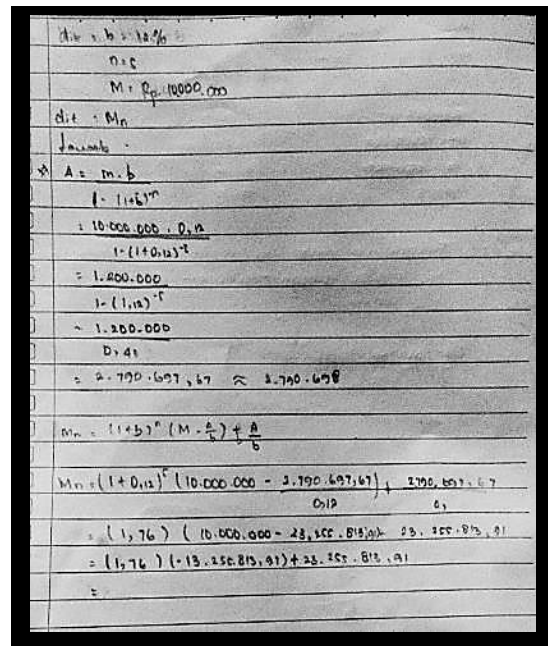 dit : b = 12 %
n = 5
M = Rp. 10000.000
dit : Mn
Jawab :
A = m . b
1 - (1+b)⁻ⁿ
= 10.000.000 . 0,12
1 - (1+0,12)⁻⁵
= 1.200.000
1 - (1,12)⁻⁵
= 1.200.000
0,43
= 2.790.697,67 ≈ 2.790.698
Mn = (1+b)ⁿ (M - A/b) + A/b
Mn = (1+0,12)⁵ (10.000.000 - 2.790.697,67) + 2790.697,67
0,12 0,
= (1,76) (10.000.000 - 23.255.813,91) 23.255.813,91
= (1,76) (-13.255.813,91) + 23.255.813,91
=